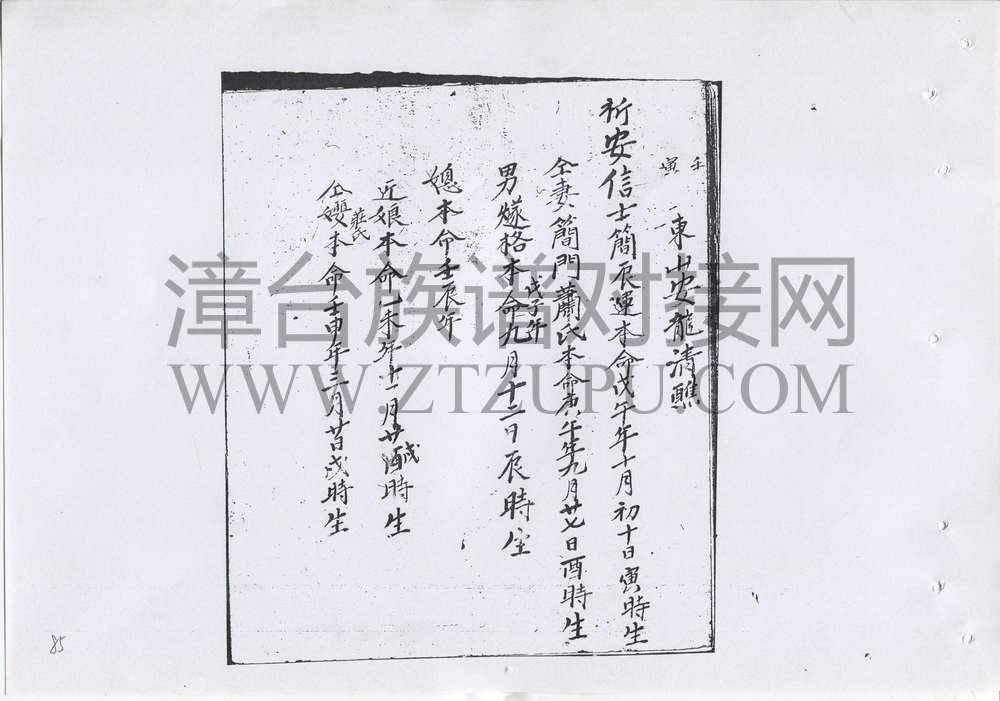 壬寅
一東山安龍清醮
祈安信士簡辰運本命戊午年十月初十日寅時生
仝妻簡門蕭氏本命庚午年九月廿七日酉時生
男燧格本命戊子年九月十二日辰時生
媳本命壬辰年
近娘本命己未年十一月廿戌時生
仝嬰莊氏本命壬申年三月廿日戌時生
漳台族谱对接网
WWW.ZTZUPU.COM
85